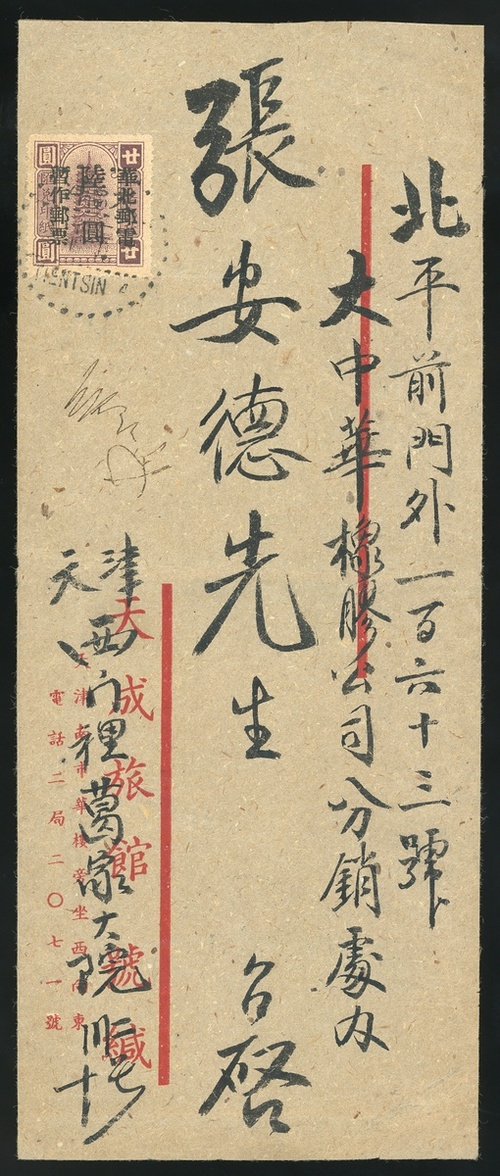 北平前門外一百六十三號
大中華橡膠公司分銷處內
張安德先生 台啓
天津
西門裡葛家大院
天成旅館 號緘
天津南市華樓旁坐西向東
電話二局二〇七一號
廿 圓
廿 圓
華北郵電
陸圓
暫作郵票
TIENTSIN 4